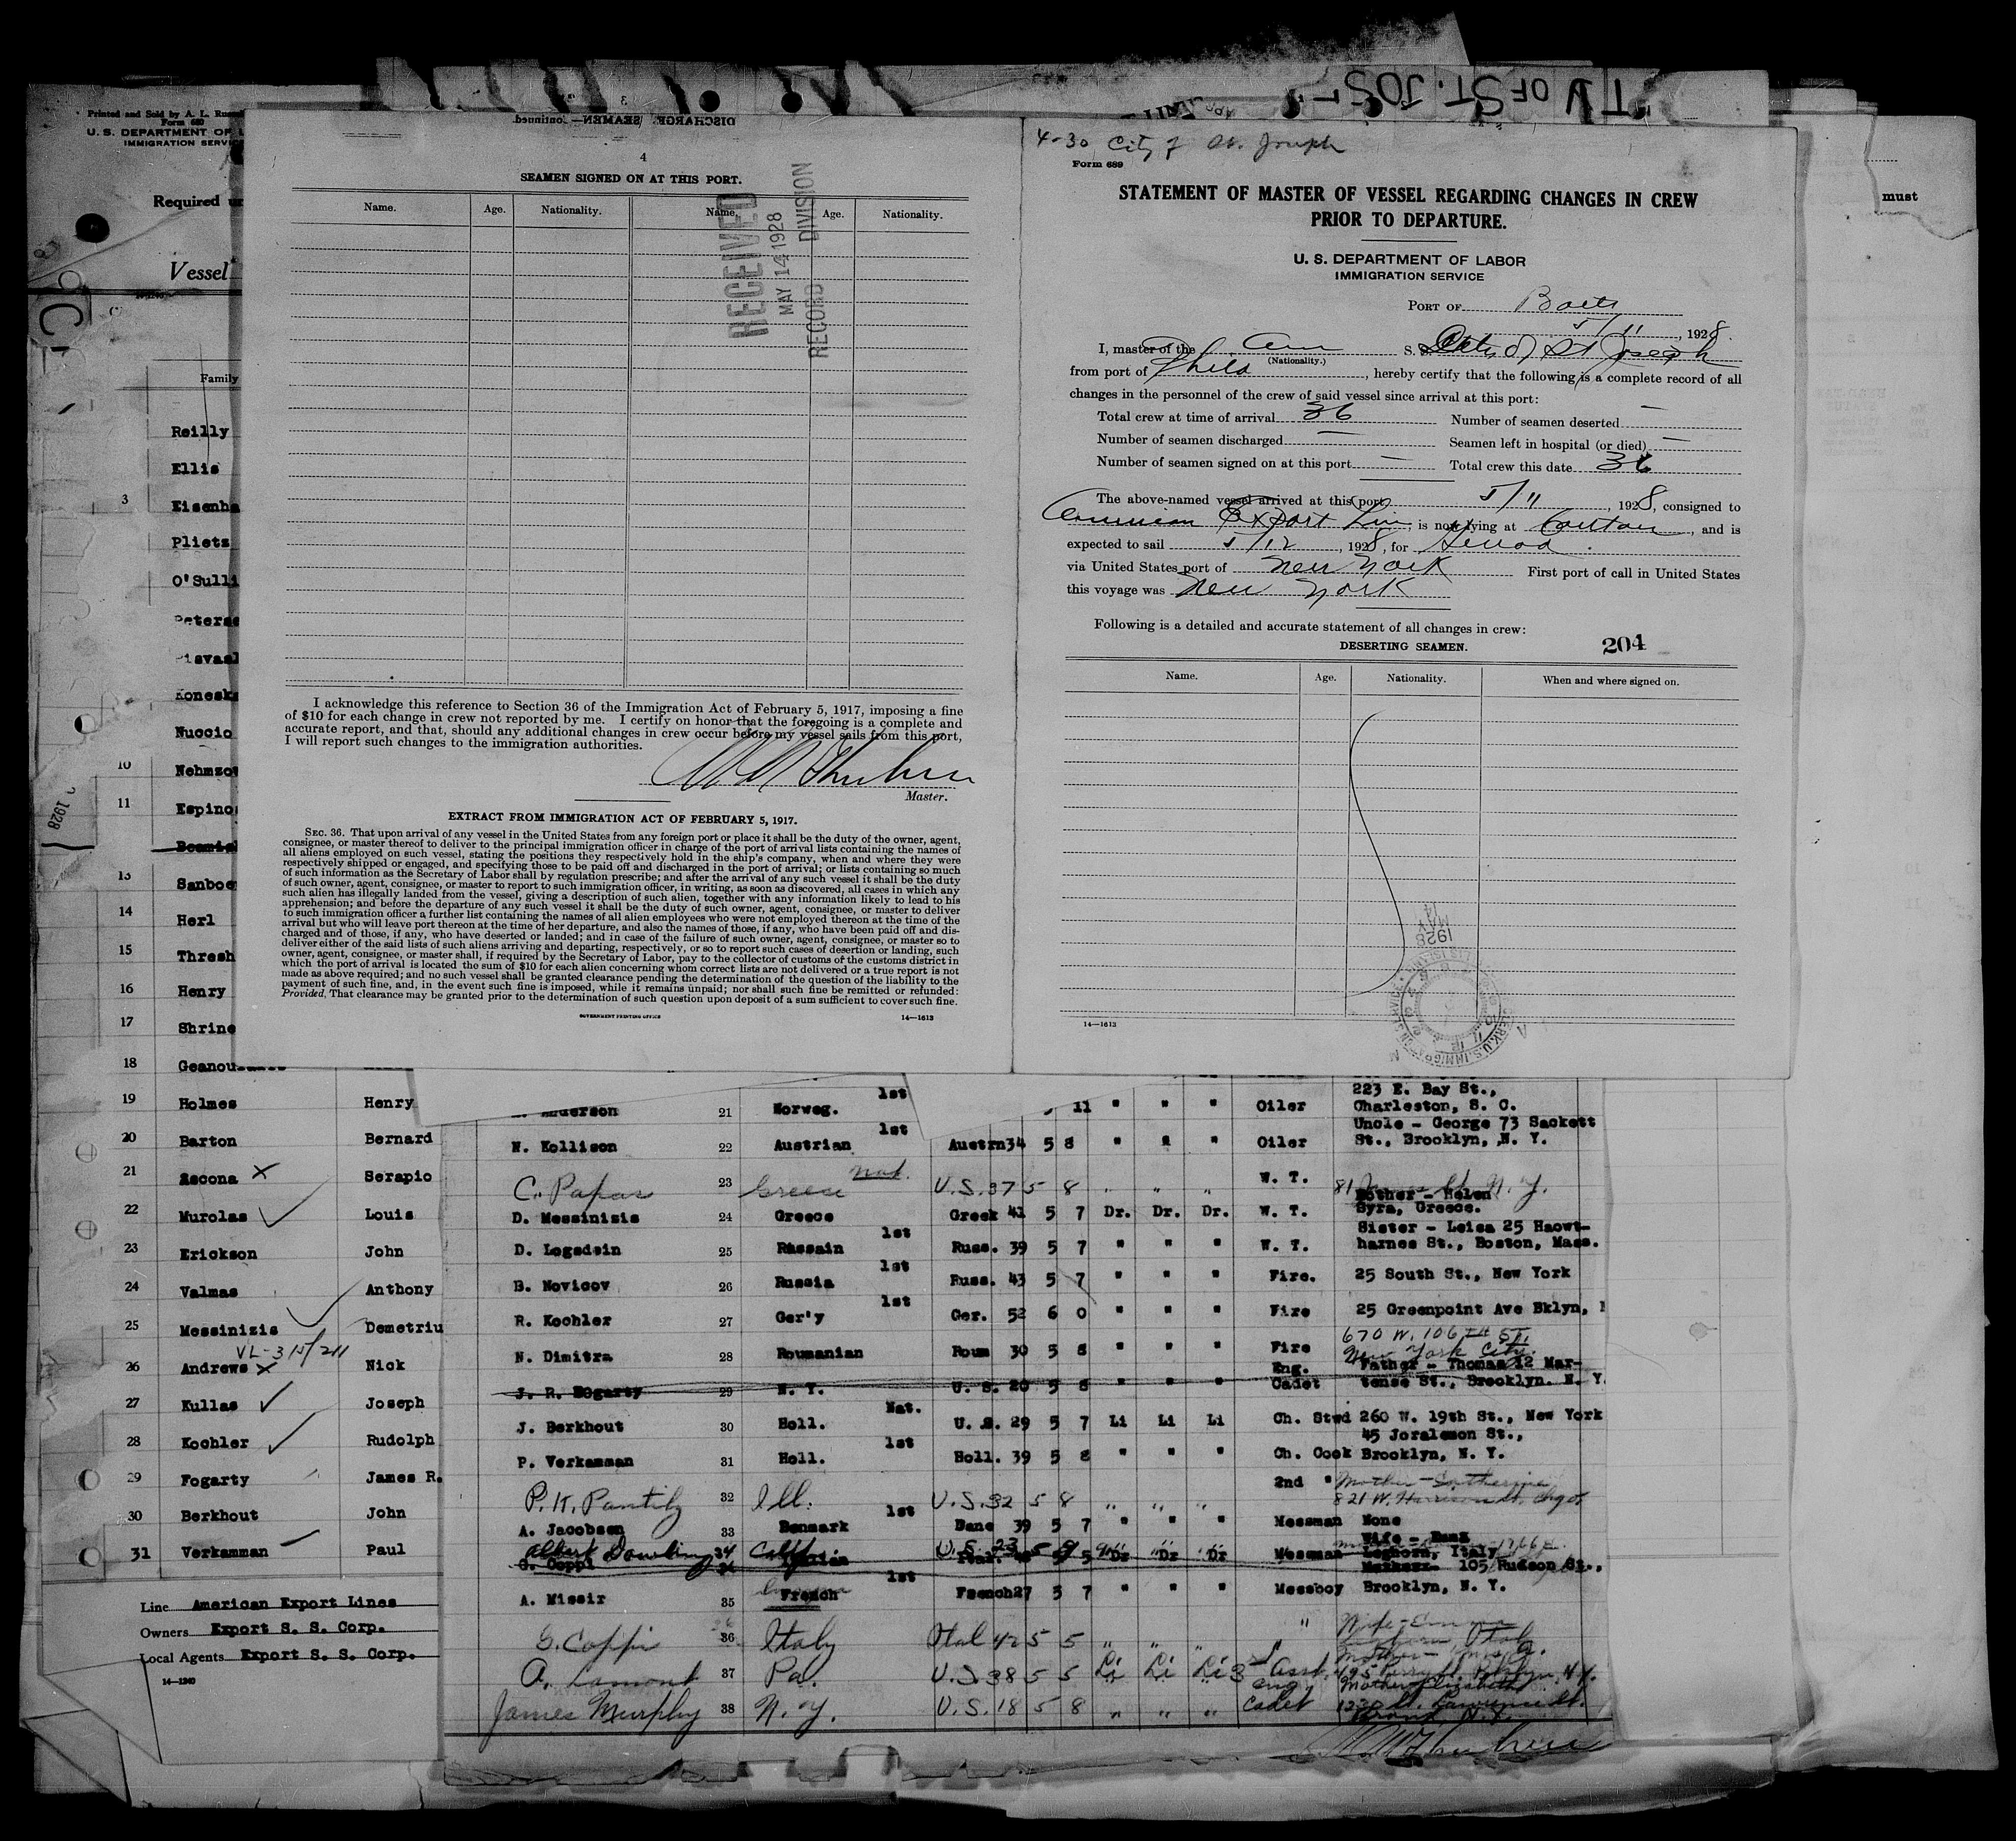 "TY OF ST. JOS
Printed and Sold by A. L.
Form 680
U. S. DEPARTMENT OF L
IMMIGRATION SERVIC
Required u
Vessel
Family
Reilly
Ellis
3 Eisenha
Plietz
O'Sulli
Peterse
Konesk
Nuccio
10 Nehmzo
11 Espino
13 Sanboe
14 Herl
15 Thresh
16 Henry
17 Shrine
18 Geanou
19 Holmes Henry
20 Barton Bernard
21 Ascona X Serapio
22 Murolas Louis
23 Erickson John
24 Valmas Anthony
25 Messinizis Demetriu
26 Andrews X Nick
27 Kullas Joseph
28 Kochler Rudolph
29 Fogarty James R.
30 Berkhout John
31 Verkamman Paul
Line American Export Lines
Owners Export S. S. Corp.
Local Agents Export S. S. Corp.
14—1240
1928
DISCHARGED SEAMEN—Continued.
4
SEAMEN SIGNED ON AT THIS PORT.
Name. Age. Nationality. Name. Age. Nationality.
RECEIVED
MAY 14 1928
RECORD DIVISION
I acknowledge this reference to Section 36 of the Immigration Act of February 5, 1917, imposing a fine
of $10 for each change in crew not reported by me. I certify on honor that the foregoing is a complete and
accurate report, and that, should any additional changes in crew occur before my vessel sails from this port,
I will report such changes to the immigration authorities.
Master.
EXTRACT FROM IMMIGRATION ACT OF FEBRUARY 5, 1917.
SEC. 36. That upon arrival of any vessel in the United States from any foreign port or place it shall be the duty of the owner, agent,
consignee, or master thereof to deliver to the principal immigration officer in charge of the port of arrival lists containing the names of
all aliens employed on such vessel, stating the positions they respectively hold in the ship's company, when and where they were
respectively shipped or engaged, and specifying those to be paid off and discharged in the port of arrival; or lists containing so much
of such information as the Secretary of Labor shall by regulation prescribe; and after the arrival of any such vessel it shall be the duty
of such owner, agent, consignee, or master to report to such immigration officer, in writing, as soon as discovered, all cases in which any
such alien has illegally landed from the vessel, giving a description of such alien, together with any information likely to lead to his
apprehension; and before the departure of any such vessel it shall be the duty of such owner, agent, consignee, or master to deliver
to such immigration officer a further list containing the names of all alien employees who were not employed thereon at the time of the
arrival but who will leave port thereon at the time of her departure, and also the names of those, if any, who have been paid off and dis-
charged and of those, if any, who have deserted or landed; and in case of the failure of such owner, agent, consignee, or master so to
deliver either of the said lists of such aliens arriving and departing, respectively, or so to report such cases of desertion or landing, such
owner, agent, consignee, or master shall, if required by the Secretary of Labor, pay to the collector of customs of the customs district in
which the port of arrival is located the sum of $10 for each alien concerning whom correct lists are not delivered or a true report is not
made as above required; and no such vessel shall be granted clearance pending the determination of the question of the liability to the
payment of such fine, and, in the event such fine is imposed, while it remains unpaid; nor shall such fine be remitted or refunded:
Provided, That clearance may be granted prior to the determination of such question upon deposit of a sum sufficient to cover such fine.
GOVERNMENT PRINTING OFFICE 14—1613
4-30 City of St. Joseph
Form 689
STATEMENT OF MASTER OF VESSEL REGARDING CHANGES IN CREW
PRIOR TO DEPARTURE.
U. S. DEPARTMENT OF LABOR
IMMIGRATION SERVICE
PORT OF Balto
5/11, 1928.
I, master of the Am S. S. City of St Joseph
(Nationality.)
from port of Phila, hereby certify that the following is a complete record of all
changes in the personnel of the crew of said vessel since arrival at this port:
Total crew at time of arrival 36 Number of seamen deserted —
Number of seamen discharged — Seamen left in hospital (or died) —
Number of seamen signed on at this port — Total crew this date 36
The above-named vessel arrived at this port 5/11, 1928, consigned to
American Export Line, is now lying at Canton, and is
expected to sail 5/12, 1928, for Genoa.
via United States port of New York First port of call in United States
this voyage was New York
Following is a detailed and accurate statement of all changes in crew:
DESERTING SEAMEN. 204
Name. Age. Nationality. When and where signed on.
MAY 14 1928
14—1613
must
Anderson 21 Norweg. 1st 11 " " " Oiler 223 E. Bay St.,
Charleston, S. C.
N. Kollison 22 Austrian 1st Austrn 34 5 8 " " " Oiler Uncle - George 73 Sackett
St., Brooklyn, N. Y.
C. Papas 23 Greece Nat. U.S. 37 5 8 " " " W. T. 81 St. N. Y.
D. Messinizis 24 Greece Greek 41 5 7 Dr. Dr. Dr. W. T. Mother - Helen
Syra, Greece.
D. Logsdein 25 Russain 1st Russ. 39 5 7 " " " W. T. Sister - Leisa 25 Hawt-
harnes St., Boston, Mass.
B. Novicov 26 Russia 1st Russ. 43 5 7 " " " Fire. 25 South St., New York
R. Kochler 27 Ger'y 1st Ger. 52 6 0 " " " Fire 25 Greenpoint Ave Bklyn,
N. Dimitra 28 Roumanian Roum 30 5 8 " " " Fire 670 W. 106 th St.
New York City.
J. R. Fogarty 29 N. Y. U. S. 20 5 8 " " " Eng. Cadet Father - Thomas 12 Mar-
tense St., Brooklyn. N. Y.
J. Berkhout 30 Holl. Nat. U. S. 29 5 7 Li Li Li Ch. Stwd 260 W. 19th St., New York
P. Verkamman 31 Holl. 1st Holl. 39 5 8 " " " Ch. Cook 45 Joralemon St.,
Brooklyn, N. Y.
P. K. Pantily 32 Ill. U.S. 32 5 8 " " " 2nd " Mother - Catherine
821 W. Harrison St. Chgo.
A. Jacobsen 33 Denmark 1st Dane 39 5 7 " " " Messman None
Albert Dowling 34 Calif. U.S. 23 5 9 " " "
G. Coppi Dr Dr Dr Messman Wife - Emma
Leghorn, Italy
A. Nissir 35 French 1st French 27 5 7 " " " Messboy 105 Hudson St.,
Brooklyn, N. Y.
G. Coppi 36 Italy Ital 42 5 5 " " " " Wife - Emma
A. Lamont 37 Pa. U.S. 38 5 5 Li Li Li 3 Asst. Eng
James Murphy 38 N. Y. U.S. 18 5 8 " " " Cadet Mother Elizabeth
1230 St. Lawrence St.
Bronx N. Y.